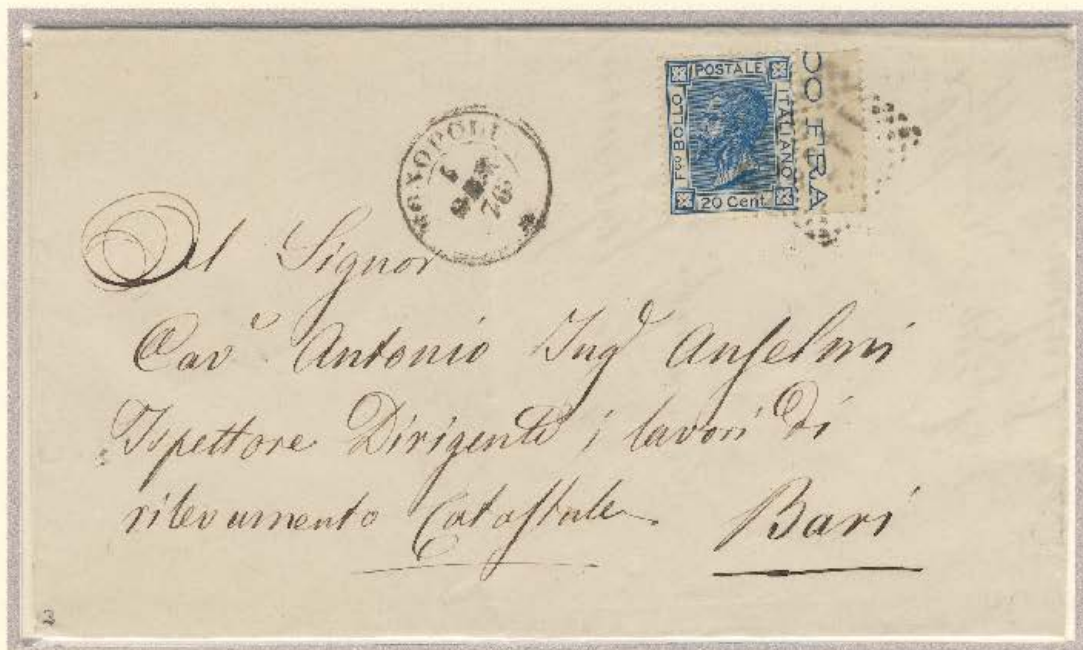 MONOPOLI
1
76
POSTALE
Fco BOLLO
ITALIANO
20 Cent
DO FRA
Al Signor
Cav.e Antonio Ing.e Anselmi
Ispettore Dirigente i lavori di
rilevamento Catastale
Bari
2